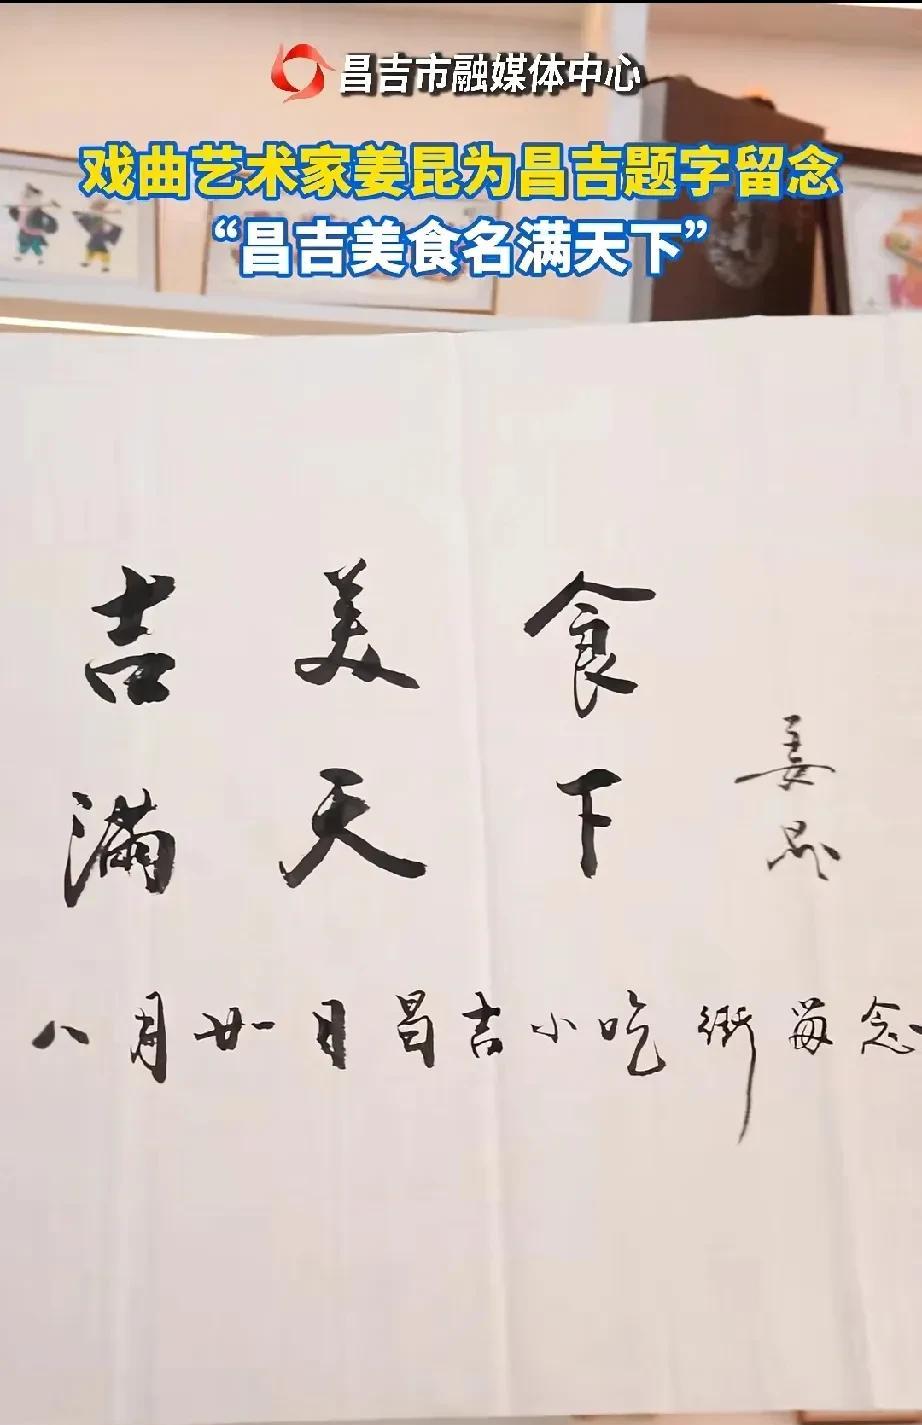 昌吉市融媒体中心
戏曲艺术家姜昆为昌吉题字留念
“昌吉美食名满天下”
吉美食
滿天下
姜昆
八月廿一日昌吉小吃街留念